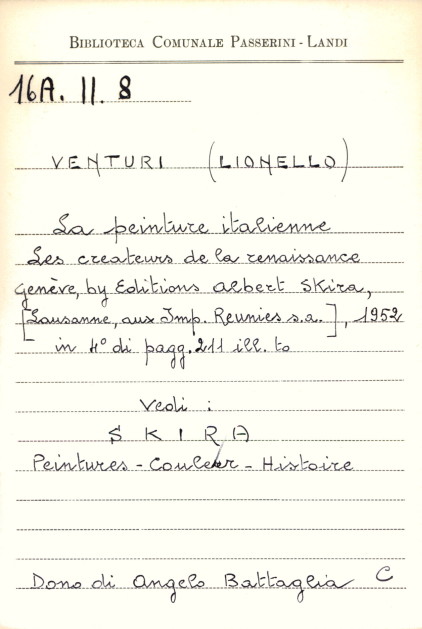 BIBLIOTECA COMUNALE PASSERINI - LANDI
16A. II. 8
VENTURI (LIONELLO)
La peinture italienne
Les createurs de la renaissance
Genève, by Editions Albert Skira,
[Lausanne, aux Imp. Reunies s.a.], 1952
in 4° di pagg. 211 ill. to
Vedi :
SKIRA
Peintures - Couleur - Histoire
Dono di Angelo Battaglia C